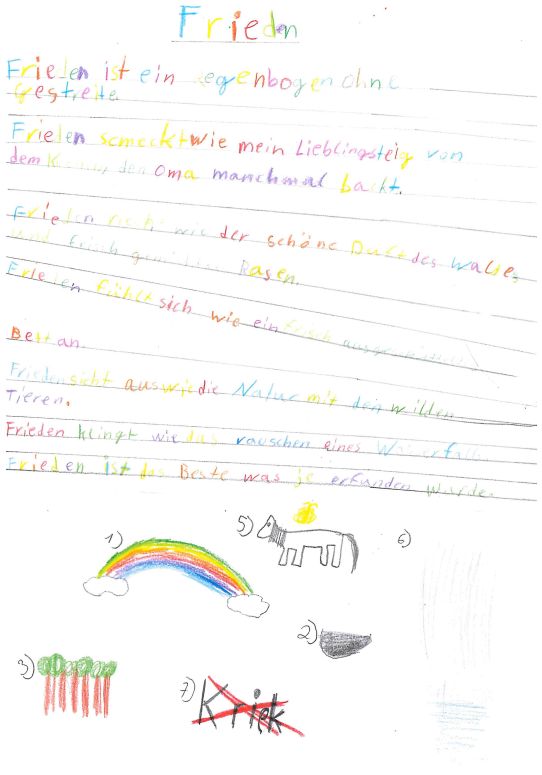 Frieden
Frieden ist ein regenbogen ohne
gestreite.
Frieden scmeckt wie mein Lieblingsteig von
dem den Oma manchmal backt.
Frieden riecht wie der schöne Duft des Waldes
und frisch gemähten Rasen.
Frieden fühlt sich wie ein frisch
Bett an.
Frieden sieht aus wie die Natur mit den wilden
Tieren.
Frieden klingt wie das rauschen eines Wasserfalls
Frieden ist das Beste was je erfunden wurde.
1)
5)
6)
2)
3)
7)
Kriek